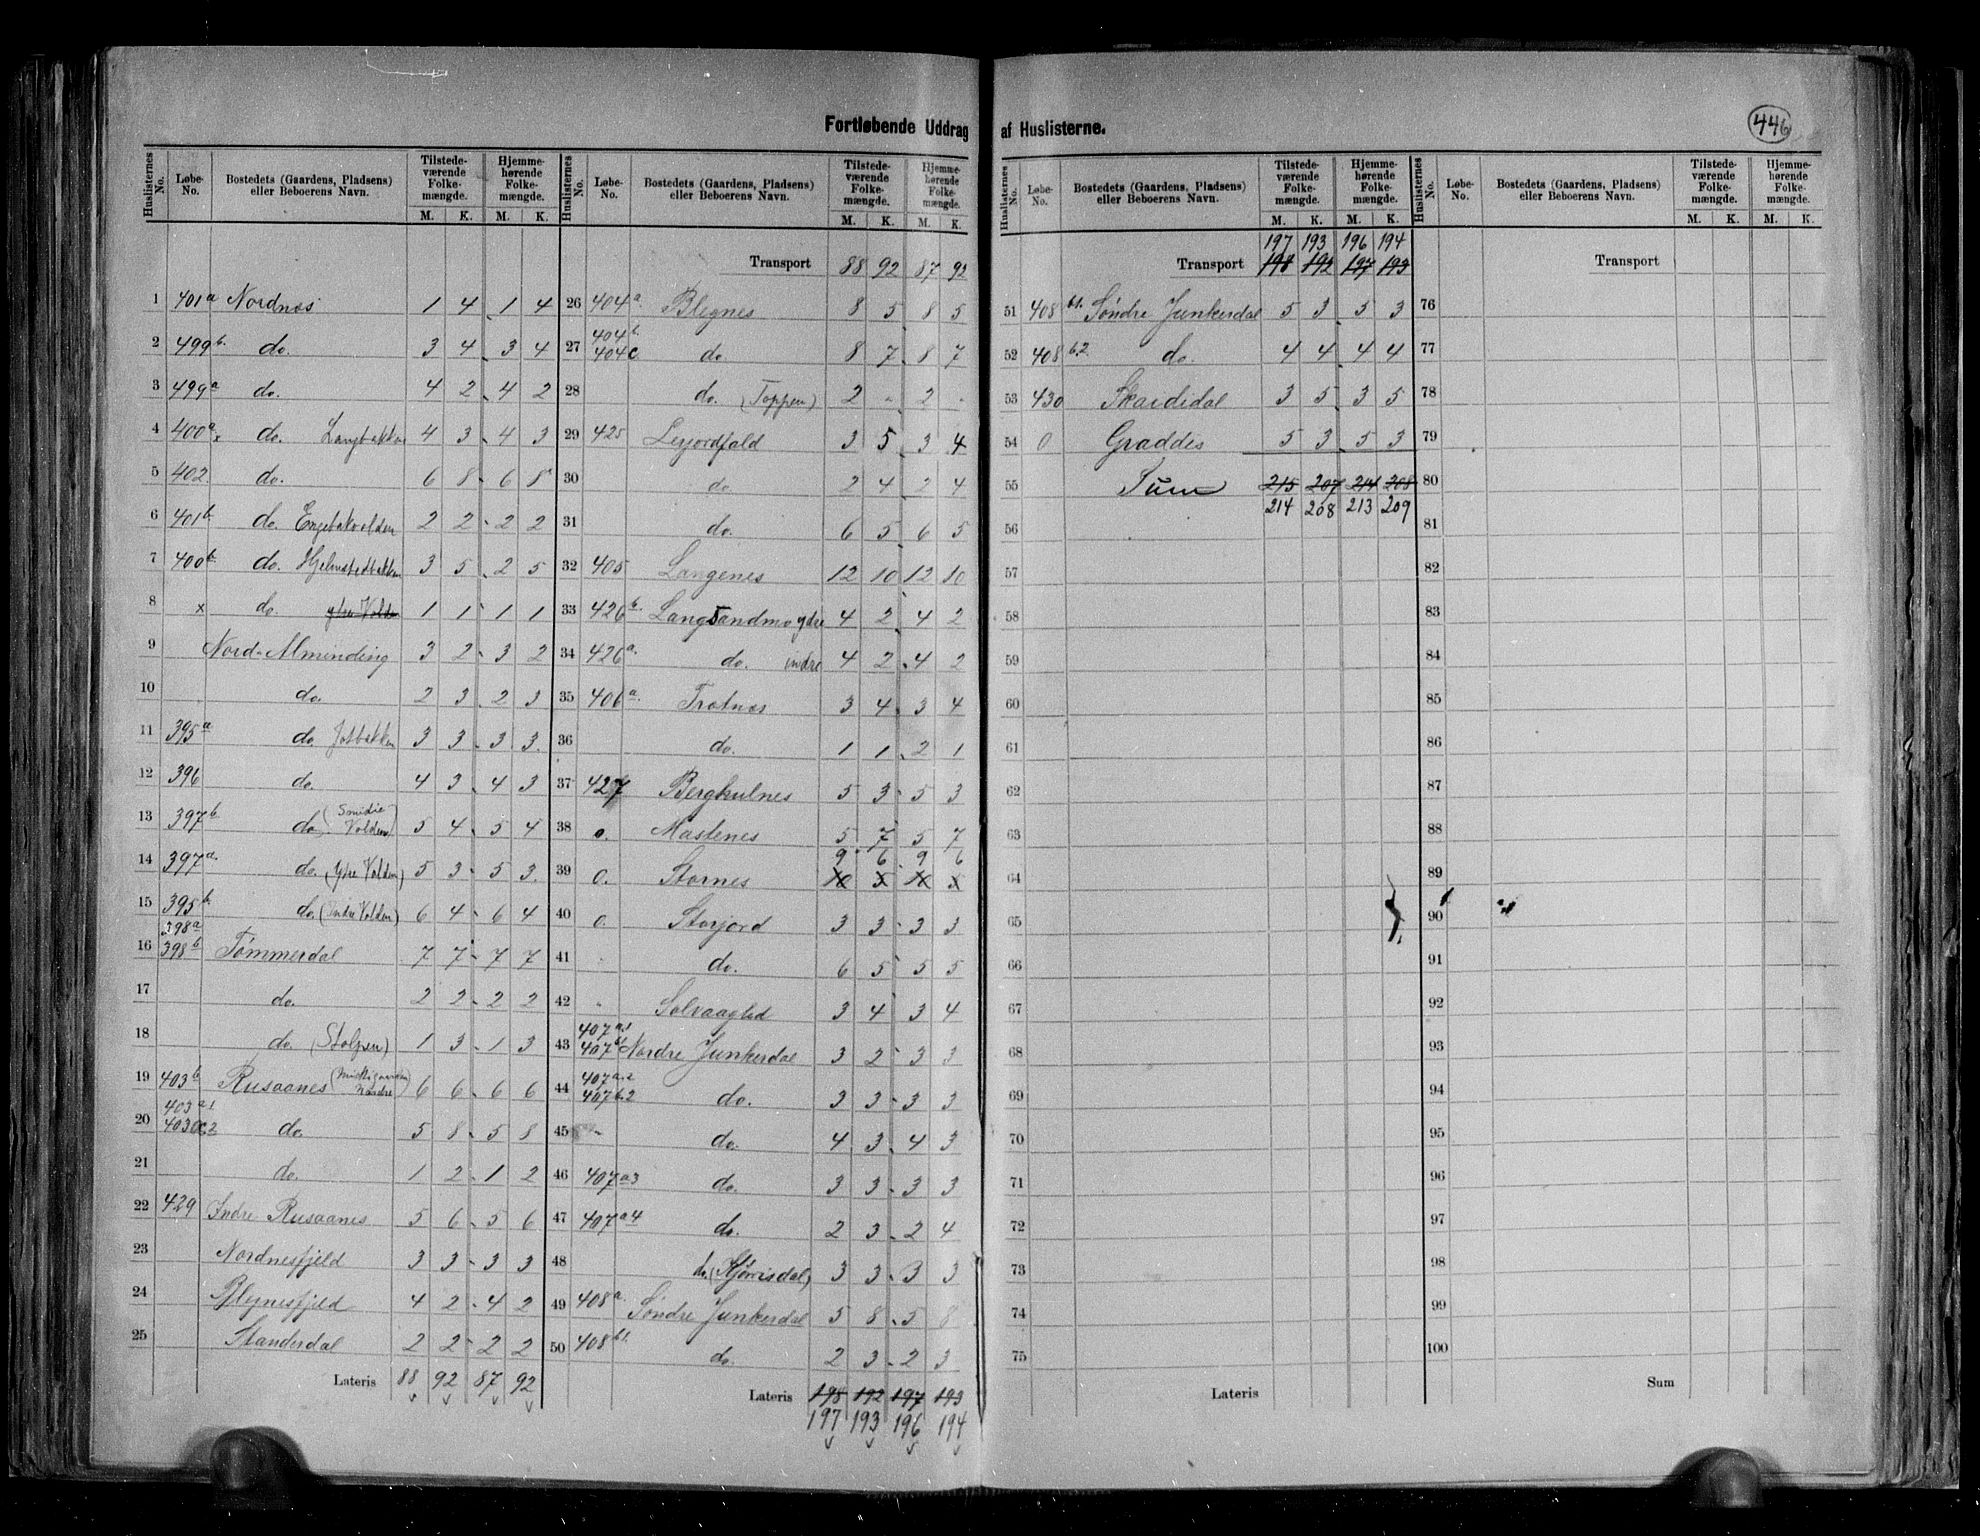 446
Fortløbende Uddrag af Huslisterne.
Huslisternes No. Løbe-No. Bostedets (Gaardens, Pladsens) eller Beboerens Navn. Tilstedeværende Folkemængde. M. K. Hjemmehørende Folkemængde. M. K.
1 401a Nordnæs 1 4 1 4
2 499b. do. 3 4 3 4
3 499a do. 4 2 4 2
4 400a x do. Langbakken 4 3 4 3
5 402. do. 6 8 6 8
6 401b. do. Engebakvolden 2 2 2 2
7 400b. do. Hjelmstedbakken 3 5 2 5
8 x do. ytre Volden 1 1 1 1
9 Nord-Alminding 3 2 3 2
10 do. 2 3 2 3
11 395a do. Jotbakken 3 3 3 3.
12 396 do. 4 3 4 3
13 397b. do. (Smidie Volden) 5 4 5 4
14 397a. do. (Ydre Volden) 5 3 5 3.
15 395b. do. (Indre Volden) 6 4 6 4
398a
16 398b Tømmerdal 7 7 7 7
17 do. 2 2 2 2
18 do. (Stolpen) 1 3 1 3
19 403b Rusaanes ( nordre) 6 6 6 6
403a1
20 403a2 do. 5 8 5 8
21 do. 1 2 1 2
22 429 Indre Rusaanes 5 6 5 6
23 Nordnesfjeld 3 3 3 3
24 Blegnesfjeld 4 2 4 2
25 Standerdal 2 2 2 2
Lateris 88 92 87 92
Huslisternes No. Løbe-No. Bostedets (Gaardens, Pladsens) eller Beboerens Navn. Tilstedeværende Folkemængde. M. K. Hjemmehørende Folkemængde. M. K.
Transport 88 92 87 92
26 404a. Blegnes 8 5 8 5
404b.
27 404c do 8 7 8 7
28 do. (Toppen) 2 - 2 -
29 425 Lejordfald 3 5 3 4
30 do 2 4 2 4
31 do. 6 5 6 5
32 405 Langenes 12 10 12 10
33 426b. Langsandmo ydre 4 2 4 2
34 426a. do. indre 4 2 4 2
35 406a. Trotnæs 3 4 3 4
36 do. 1 1 2 1
37 427 Berghulnes 5 3 5 3
38 o. Mastenes 5 7 5 7
9 6 9 6
39 0. Stornes 10 5 10 5
40 0. Storjord 3 3 3 3
41 do. 6 5 5 5
42 Solvaaglid 3 4 3 4
407a.1
43 407b1 Nordre Junkerdal 3 2 3 3
407a.2
44 407b.2 do. 3 3 3 3
45 do. 4 3 4 3
46 407a3 do. 3 3 3 3
47 407a4 do. 2 3 2 4
48 do. (Stjørrisdal) 3 3 3 3
49 408a. Søndre Junkerdal 5 8 5 8
50 408b1. do. 2 3 2 3
Lateris 198 192 197 193
197 193 196 194
Huslisternes No. Løbe-No. Bostedets (Gaardens, Pladsens) eller Beboerens Navn. Tilstedeværende Folkemængde. M. K. Hjemmehørende Folkemængde. M. K.
197 193 196 194
Transport 198 192 197 193
51 408b1. Søndre Junkerdal 5 3 5 3
52 408b.2 do. 4 4 4 4
53 430 Skardidal 3 5 3 5
54 0 Graddes 5 3 5 3
55 Sum 215 207 214 208
214 208 213 209
56
57
58
59
60
61
62
63
64
65
66
67
68
69
70
71
72
73
74
75
Lateris
Huslisternes No. Løbe-No. Bostedets (Gaardens, Pladsens) eller Beboerens Navn. Tilstedeværende Folkemængde. M. K. Hjemmehørende Folkemængde. M. K.
Transport
76
77
78
79
80
81
82
83
84
85
86
87
88
89
90
91
92
93
94
95
96
97
98
99
100
Sum